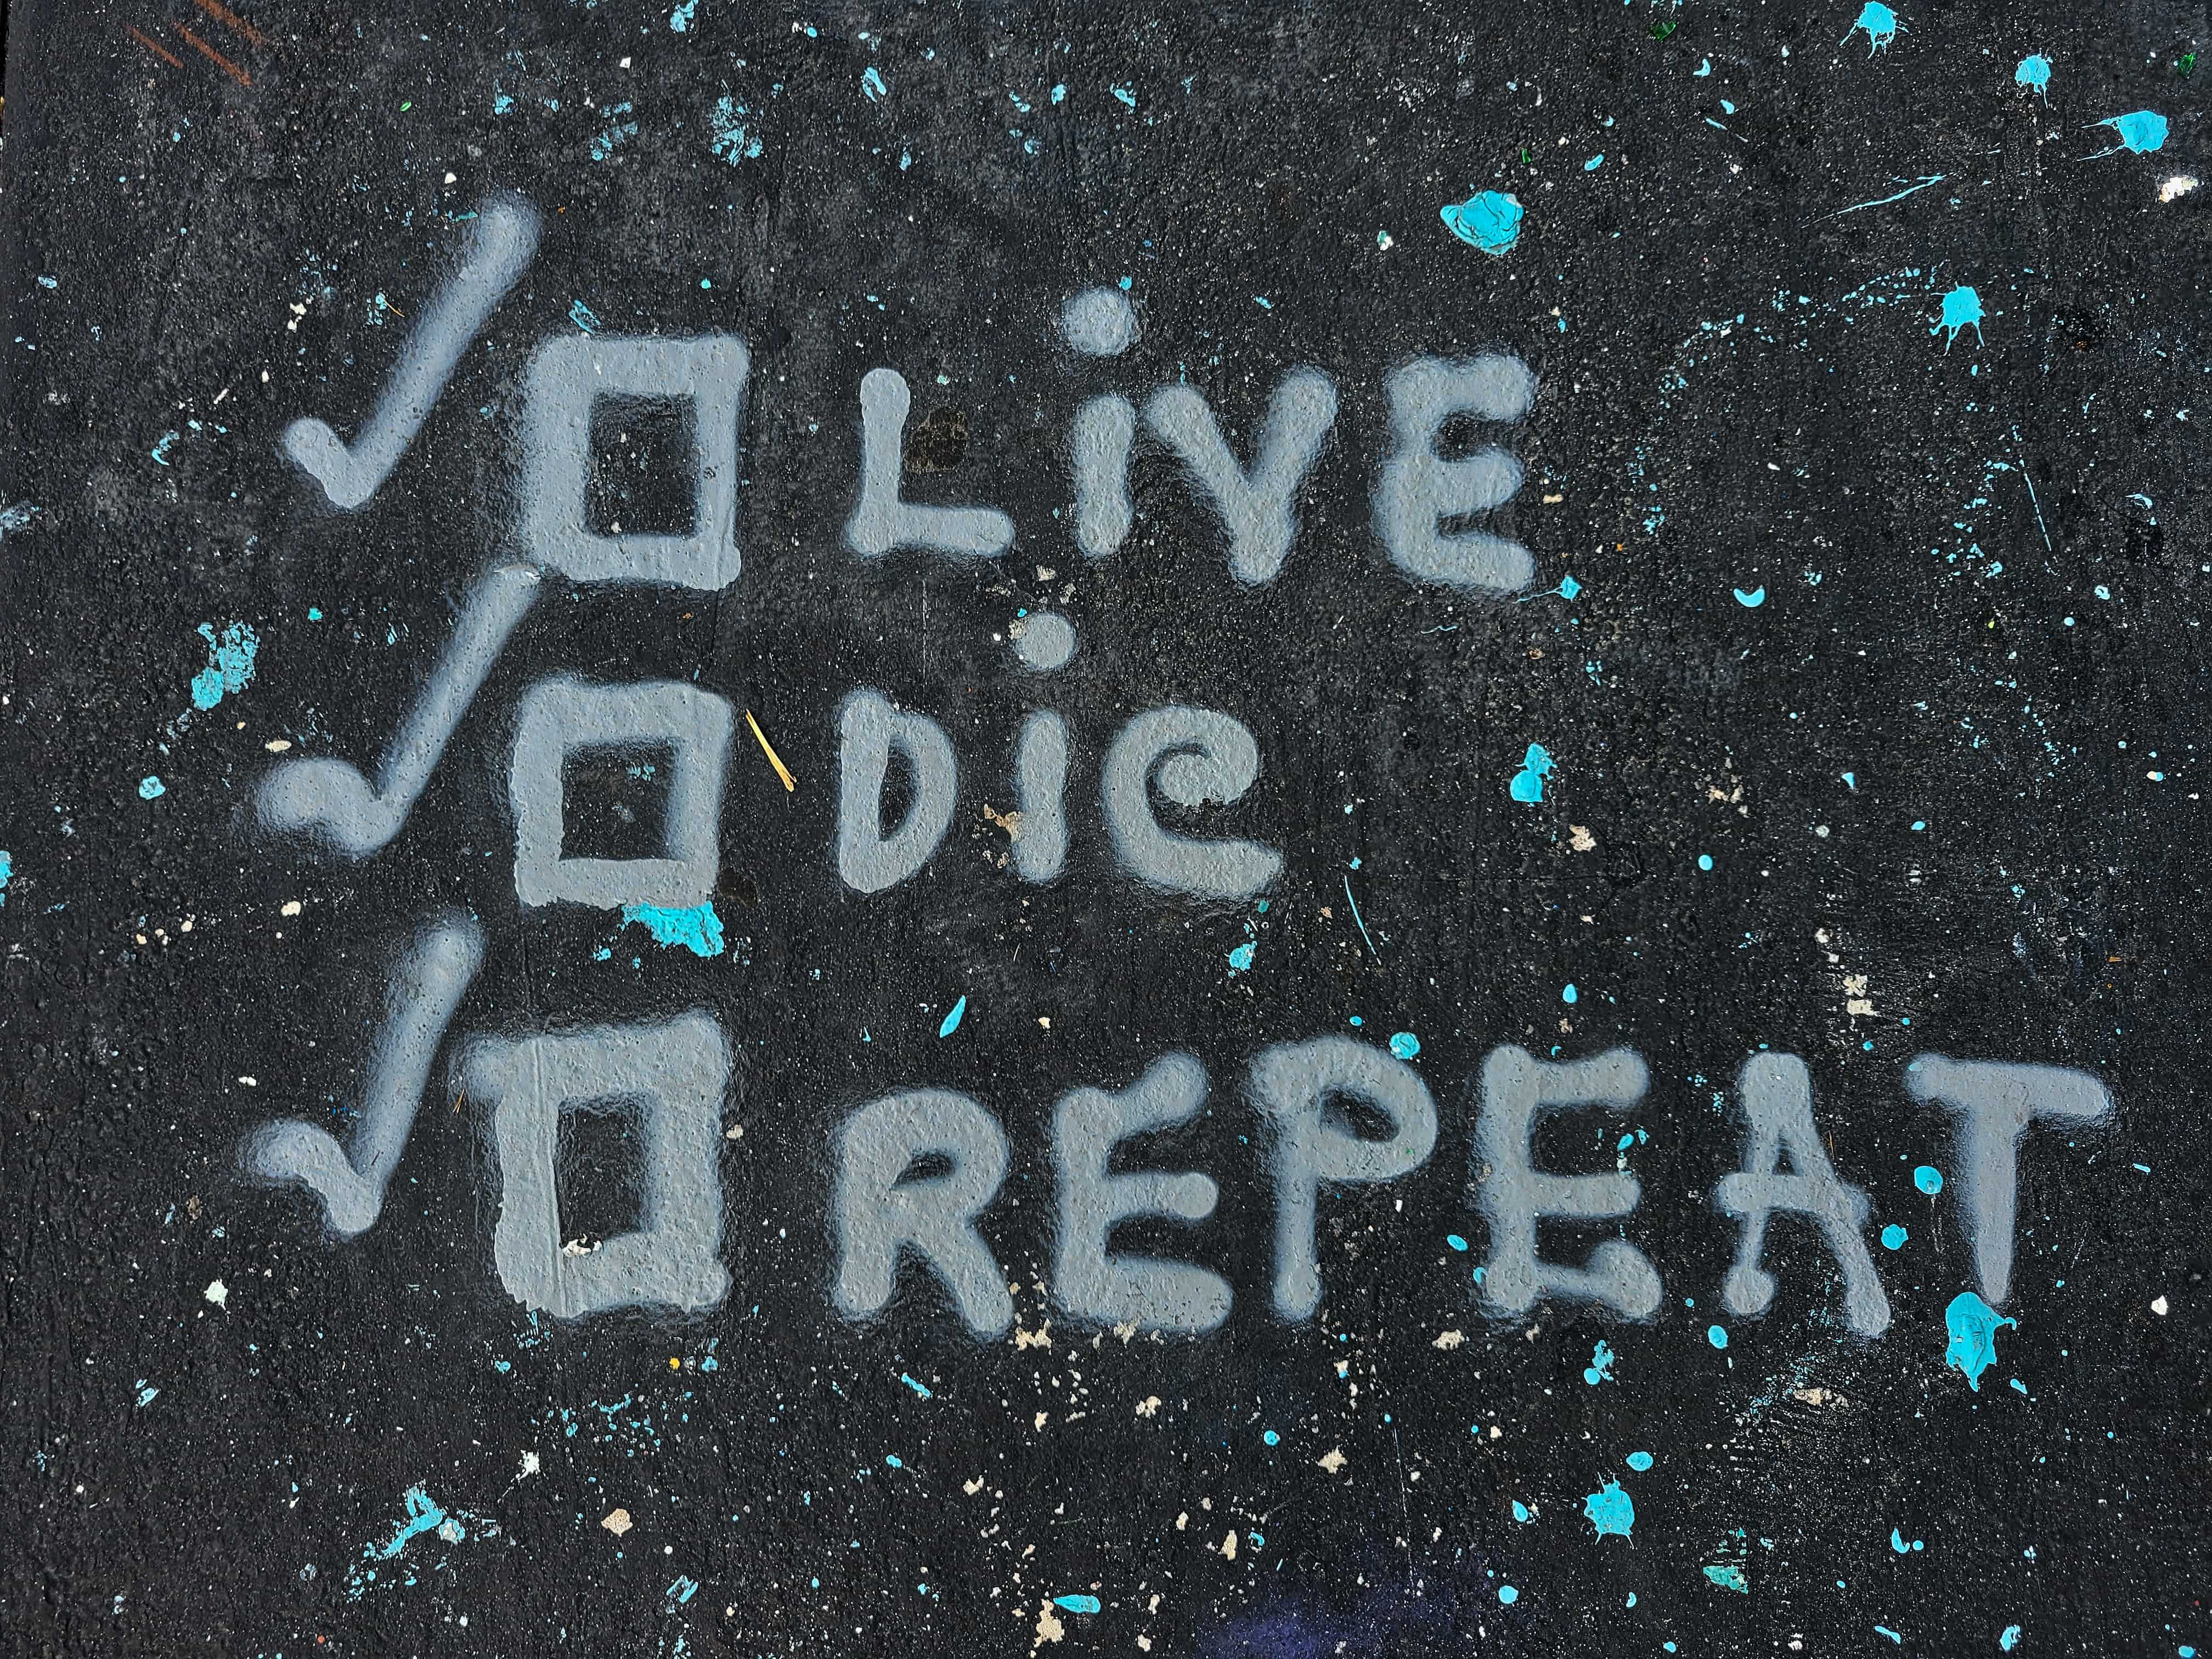 ✓☐ LiVE
✓☐ DiE
✓☐ REPEAT